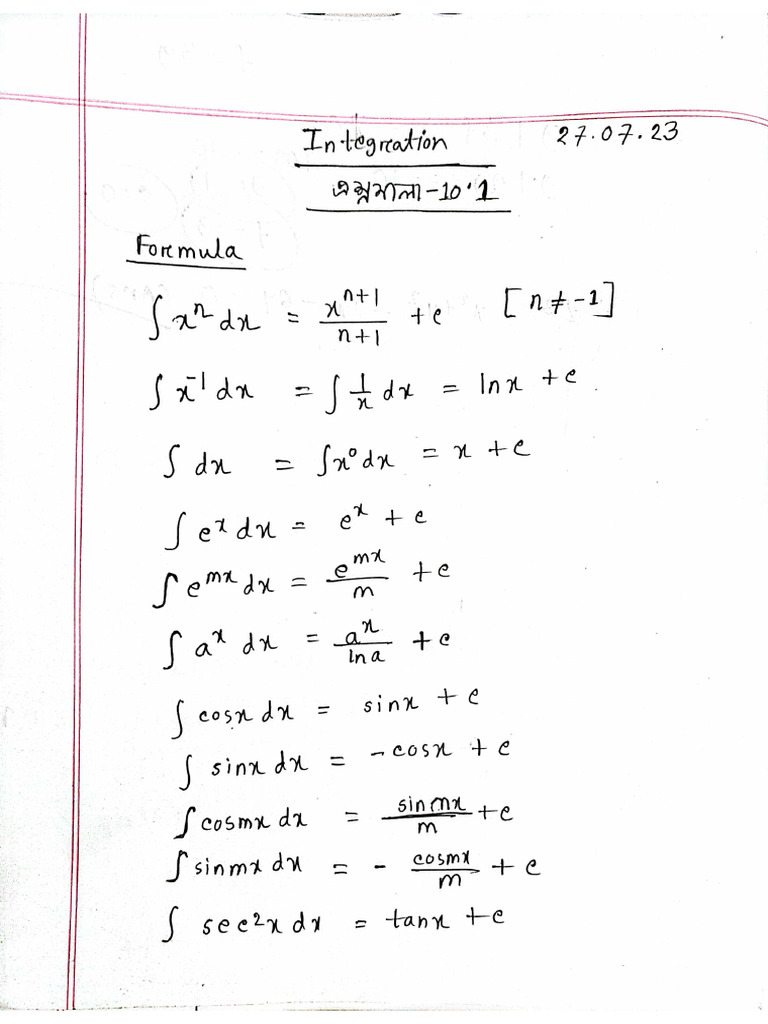 Integration
27.07.23
প্রশ্নমালা-10.1
Formula
∫ xⁿ dx = xⁿ⁺¹/n+1 + c [n ≠ -1]
∫ x⁻¹ dx = ∫ 1/x dx = ln x + c
∫ dx = ∫ x⁰ dx = x + c
∫ eˣ dx = eˣ + c
∫ eᵐˣ dx = eᵐˣ/m + c
∫ aˣ dx = aˣ/ln a + c
∫ cosx dx = sinx + c
∫ sinx dx = -cosx + c
∫ cosmx dx = sinmx/m + c
∫ sinmx dx = - cosmx/m + c
∫ sec²x dx = tanx + c